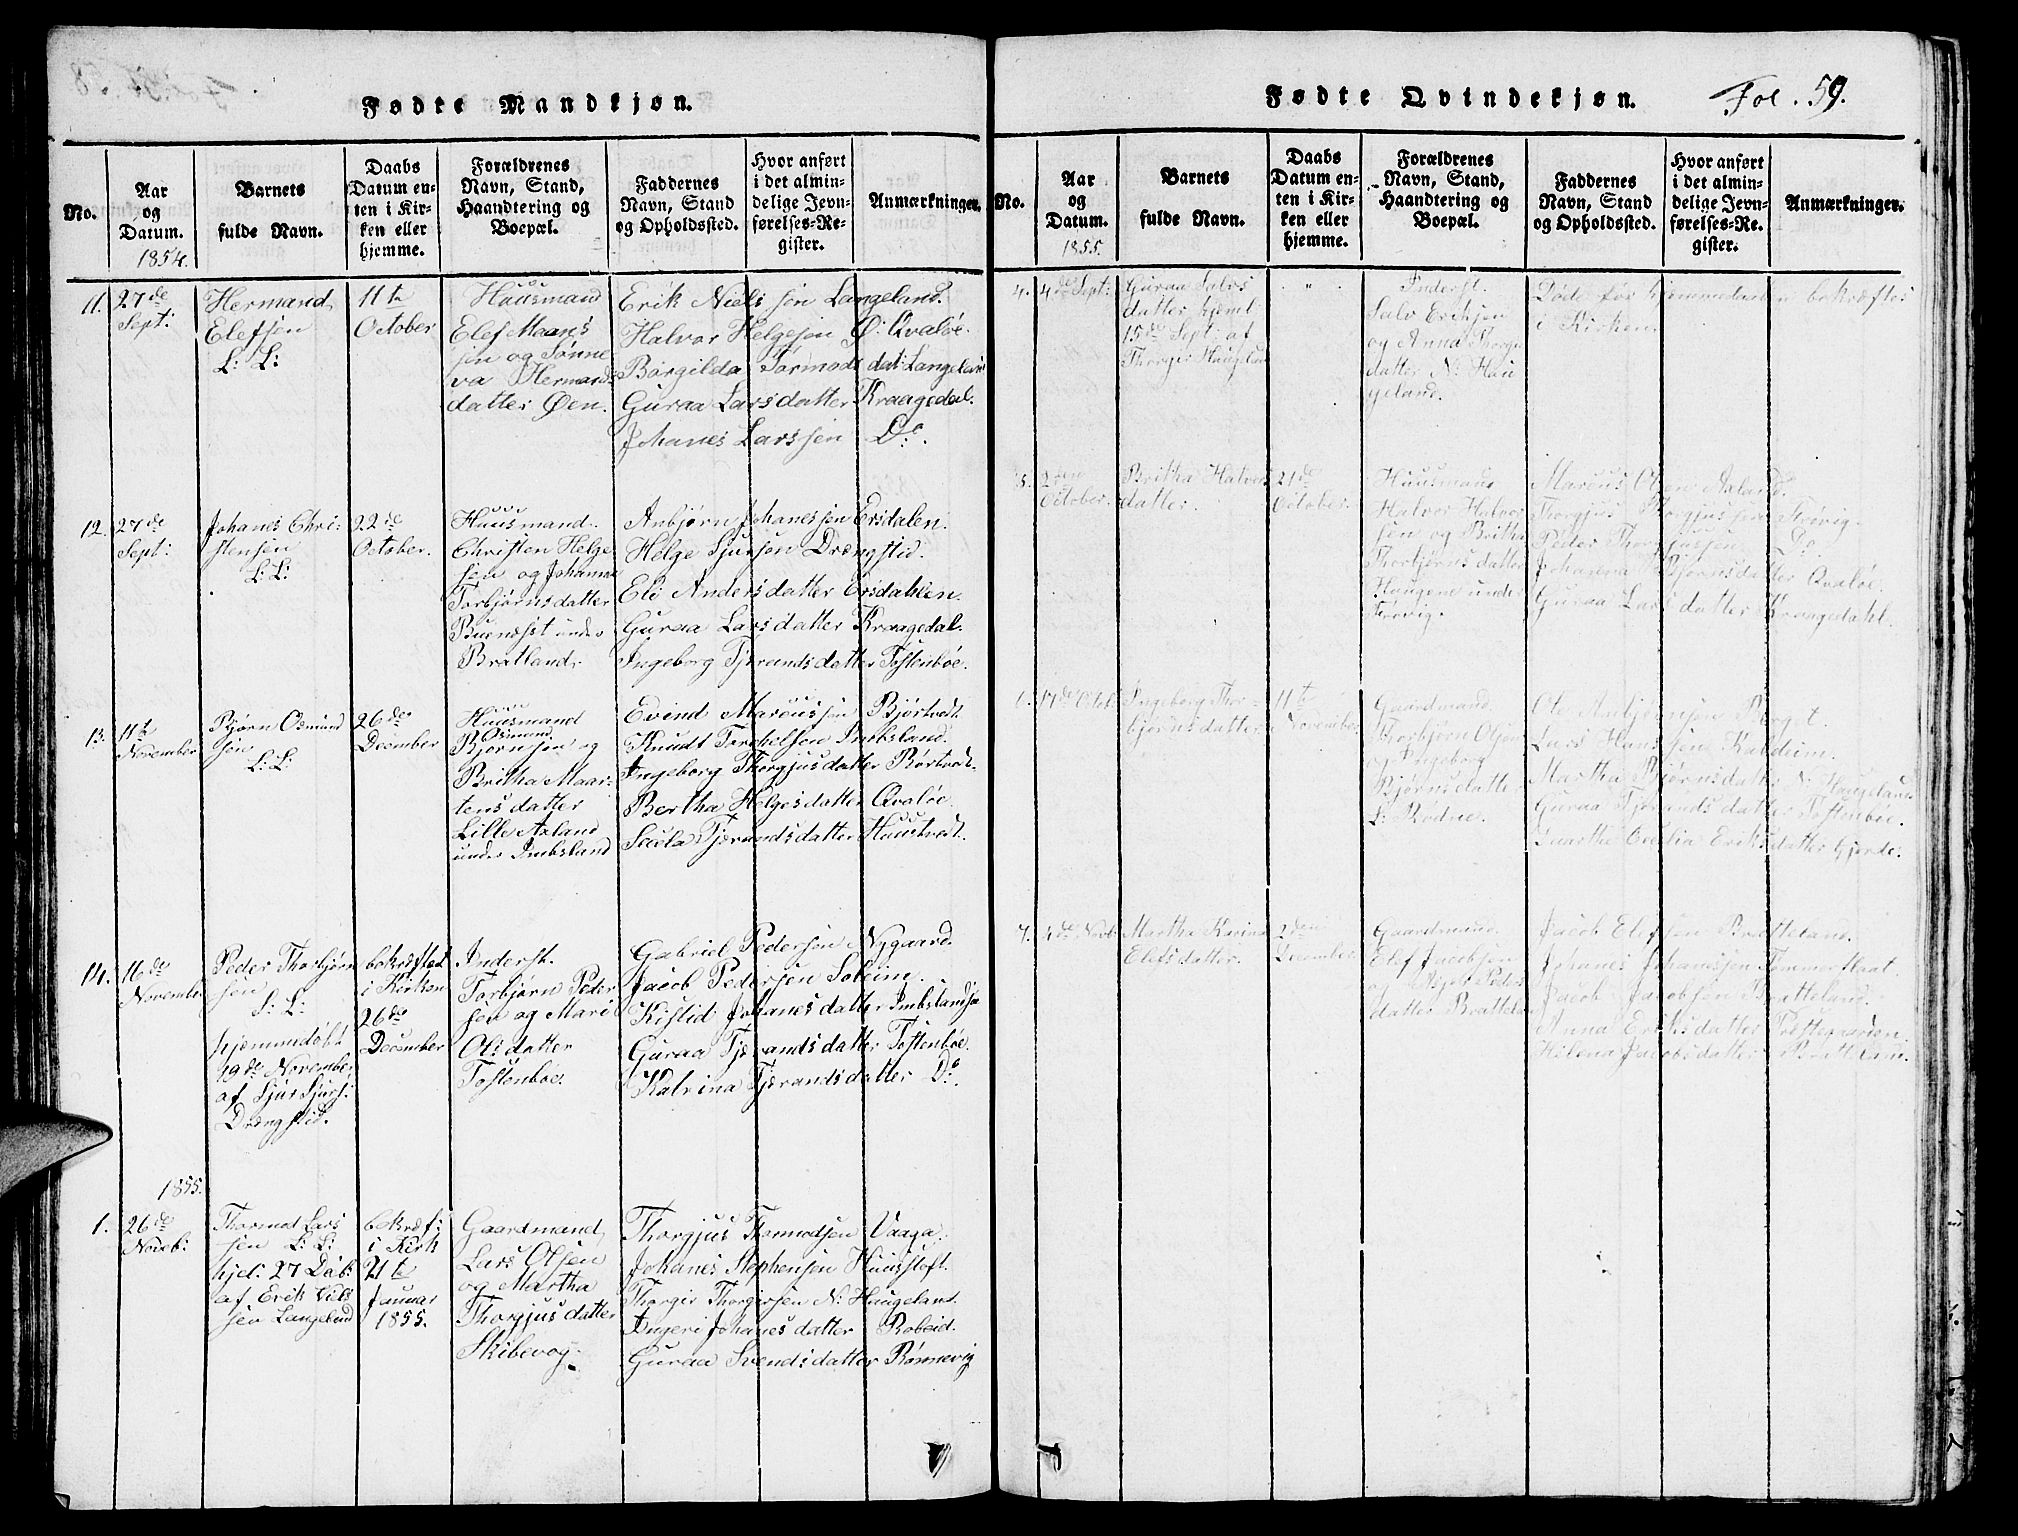 Fødte Mandkjøn.
No.
Aar
og
Datum.
1854.
Barnets
fulde Navn.
Daabs
Datum en-
ten i Kir-
ken eller
hjemme.
Forældrenes
Navn, Stand,
Haandtering og
Boepæl.
Faddernes
Navn, Stand
og Opholdssted.
Hvor anført
i det almin-
delige Jevn-
førelses-Re-
gister.
Anmærkninger.
11.
27de
Sept:
Hermand
Elefsen
L: L:
11te
October
Huusmand
Elef Maans
sen og Sønne
va Hermands
datter Øen.
Erik Nielssen Langeland.
Halvor Helgesen Ø: Qvaløe.
Børgilda Tormods dat: Langeland
Guraa Larsdatter Kraagedal.
Johanes Larssen Do.
12.
27de
Sept:
Johanes Chri:
stensen
L: L:
22de
October.
Huusmand.
Christen Helge
sen og Johanna
Torbjørnsdatter
under
Bratland.
Anbjørn Johanessen Ersdalen.
Helge Sjursøn Drengstid.
Eli Andersdatter Ersdahlen.
Guraa Larsdatter Kraagedal.
Ingeborg Tjerandsdatter Tostenbøe.
13.
11te
November
Bjørn Osmund
sen
L: L:
26de
December
Huusmand
Osmund
Bjørnsen og
Britha Maar-
tensdatter
Lille Axland
under Imbsland
Evind Marcussen Bjørtvedt.
Knudt Torchelsen Imbsland.
Ingeborg Thorgjusdatter Børtvedt.
Bertha Helgesdatter Qvaløe.
Seiela Tjerandsdatter Huustvedt.
14.
16de
November
Peder Thorbjørn
sen
L: L:
hjemmedøbt
19de November
af Sjur Sjurs:
Drengstid.
bekræftet
i Kirken
26de
December
Inderst.
Torbjørn Peder
sen og Mari
Olsdatter
Tostenbøe.
Gabriel Pedersen Nygaard.
Jacob Pedersen Soleim.
Kistid Johanesdatter Imbslandsjø
Guraa Tjerandsdatter Tostenbøe.
Katrina Tjerandsdatter Do.
1855.
1.
26de
Novb:
Thormod Lars
sen L: L:
hjd: 27 Dab:
af Erik Niels
sen Langeland
bekræf:
i Kirk
21te
Januar
1855.
Gaardmand
Lars Olsen
og Martha
Thorgjusdatter
Skibevog.
Thorgjus Thormodsen Vaaga.
Johanes Stephensøn Huustoft.
Thorgir Thorgirsen N: Haugeland.
Ingeri Johanesdatter Robeid.
Guraa Svendsdatter Rønnevig
Fødte Qvindekjøn.
Fol. 59.
No.
Aar
og
Datum.
1855.
Barnets
fulde Navn.
Daabs
Datum en-
ten i Kir-
ken eller
hjemme.
Forældrenes
Navn, Stand,
Haandtering og
Boepæl.
Faddernes
Navn, Stand
og Opholdssted.
Hvor anført
i det almin-
delige Jevn-
førelses-Re-
gister.
Anmærkninger.
4.
4de Sept:
Guraa Salvs
datter hjemt
15de Sept: af
Thorgir Haugeland
Inderst.
Salv Eriksen
og Anna Thorgi
datter N: Hau
geland.
Døde før hjemmedaaben bekræftes
i Kirken.
5.
2den
October.
Britha Halvors
datter.
21de
October.
Huusmand
Halvor Halvor
sen og Britha
Thorbjørnsdatter
Haugene under
Frøvig.
Marcus Olsen Axland.
Thorgjus Thorgjussen Frøvig.
Peder Thorgjussen Do.
Johanna Bjørnsdatter Qvaløe.
Guraa Larsdatter Kraagedahl.
6.
17de Octob:
Ingeborg Thor-
bjørnsdatter
11te
November
Gaardmand.
Thorbjørn Olsen
og Ingeborg
Bjørnsdatter
L: Rodne.
Ole Anbjørnsen Berget.
Lars Hanssen Kaldeim.
Martha Bjørnsdatter N: Haugeland
Guraa Tjerandsdatter Tostenbøe.
Cecilia Eriksdatter Gjerde.
7.
4de Novb:
Martha Karina
Elefsdatter.
2den
December
Gaardmand.
Elef Jacobsen
og Peders
datter Bratteland
Jacob Elefsen Bratteland.
Johanes Johanessen Tømmerflaat.
Jacob Jacobsen Bratteland.
Anna Eriksdatter Prestegaarden.
Helena Jacobsdatter Bratteland.